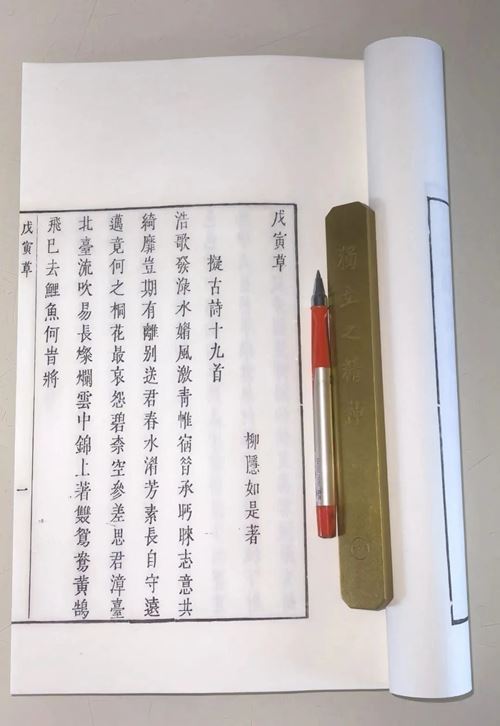 戊寅草
柳隱如是著
擬古詩十九首
浩歌發淥水風激青帷宿承眄睞志意共
綺靡豈期有離別送君春水湄芳素長自守遠
邁竟何之桐花最哀怨碧柰空參差思君漳臺
北臺流吹易長燦爛雲中錦上著雙鴛鴦黃鵠
飛已去鯉魚何旹將
戊寅草
一
獨立之精神